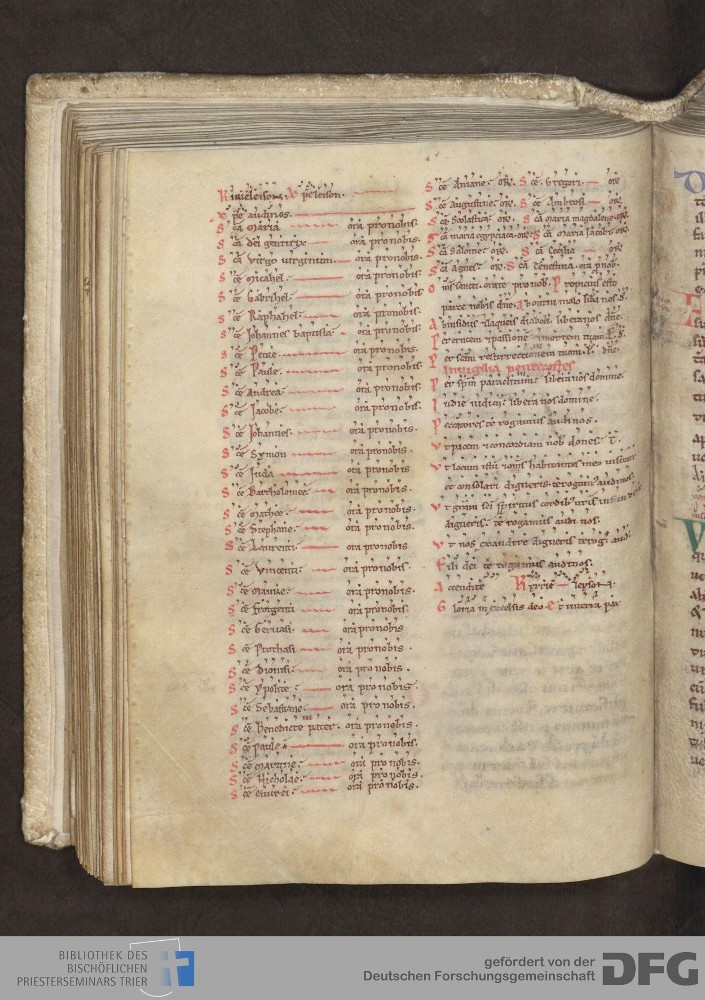 Kirieleison. Xpeleison.
Xpe audi nos.
Sca Maria ora pro nobis.
Sca dei genitrix ora pro nobis.
Sca Virgo virginum ora pro nobis.
Sce Michahel ora pro nobis.
Sce Gabrihel ora pro nobis.
Sce Raphahel ora pro nobis.
Sce Johannes baptista ora pro nobis.
Sce Petre ora pro nobis.
Sce Paule ora pro nobis.
Sce Andrea ora pro nobis.
Sce Jacobe ora pro nobis.
Sce Johannes ora pro nobis.
Sce Symon ora pro nobis.
Sce Juda ora pro nobis
Sce Bartholomee ora pro nobis.
Sce Mathee ora pro nobis.
Sce Stephane ora pro nobis.
Sce Laurenti ora pro nobis
Sce Vincenti ora pro nobis.
Sce ora pro nobis.
Sce ora pro nobis.
Sce Gervasi ora pro nobis
Sce Prothasi ora pro nobis.
Sce Dionisi ora pro nobis.
Sce Ypolite ora pro nobis.
Sce Sebastiane ora pro nobis.
Sce Benedicte pater ora pro nobis.
Sce Paule ora pro nobis.
Sce ora pro nobis.
Sce Nicholae ora pro nobis.
Sce ora pro nobis.
Sce Aniane or. Sce Gregori or
Sce Augustine or. Sce Ambrosi or
Sca Scolastica or. Sca maria magdalene or.
Sca maria egyptiaca or. Sca Maria Jacobi or.
Sca Salome or. Sca Cecilia or
Sca Agnes or. Sca ora p nob.
Oms sancti orate pro nob. Propicius esto
parce nobis dne. Ab omni malo libera nos d.
Ab insidiis diaboli libera nos dne.
Per crucem & passione tuam
Per scam resurrectionem tuam L. dne.
In vigilia pentecostes
Per spm paraclitum libera nos domine.
In die iudicii libera nos domine.
Peccatores te rogamus audi nos.
Vt pacem & concordiam nob dones T.
Vt locum istu & oms habitantes in eo visitare
et consolari digneris te rogam audi nos.
Vt gram sci spiritus cordib
digneris te rogamus audi nos.
Vt nos exaudire digneris te rog aud
Fili dei te rogamus audi nos.
Accendite Kyrie leyson.
Gloria in excelsis deo. Et in terra pax
BIBLIOTHEK DES
BISCHÖFLICHEN
PRIESTERSEMINARS TRIER
gefördert von der
Deutschen Forschungsgemeinschaft
DFG